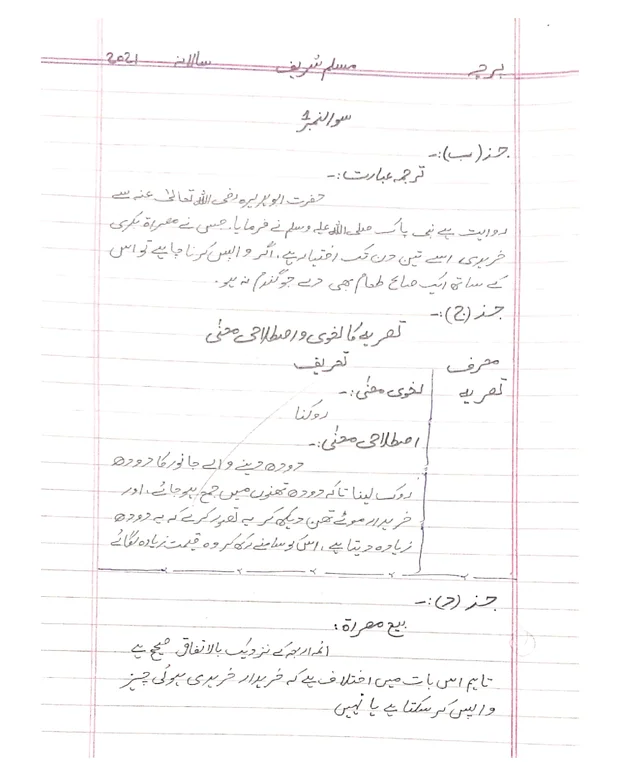 پرچہ مسلم شریف سالانہ 2021
سوالنمبر 1
جز (ب):-
ترجمہ عبارت:-
حضرت ابو ہریرہ رضی اللہ تعالیٰ عنہ سے
روایت ہے نبی پاک صلی اللہ علیہ وسلم نے فرمایا۔ جس نے مصراۃ بکری
خریدی اسے تین دن تک اختیار ہے۔ اگر واپس کرنا چاہے تو اس
کے ساتھ ایک صاع طعام بھی دے جو گندم نہ ہو۔
جز (ج):-
تصریہ کا لغوی و اصطلاحی معنٰی
معرف تعریف
تصریہ لغوی معنٰی:-
روکنا
اصطلاحی معنٰی:-
دودھ دینے والے جانور کا دودھ
روک لینا تاکہ دودھ تھنوں میں جمع ہو جائے۔ اور
خریدار موٹے تھن دیکھ کر یہ تصور کرے کہ یہ دودھ
زیادہ دیتا ہے۔ اس کو سامنے رکھ کر وہ قیمت زیادہ لگائے
جز (د):-
بیع مصراۃ:
ائمہ اربعہ کے نزدیک بالاتفاق صحیح ہے
تاہم اس بات میں اختلاف ہے کہ خریدار خریدی ہوئی چیز
واپس کر سکتا ہے یا نہیں